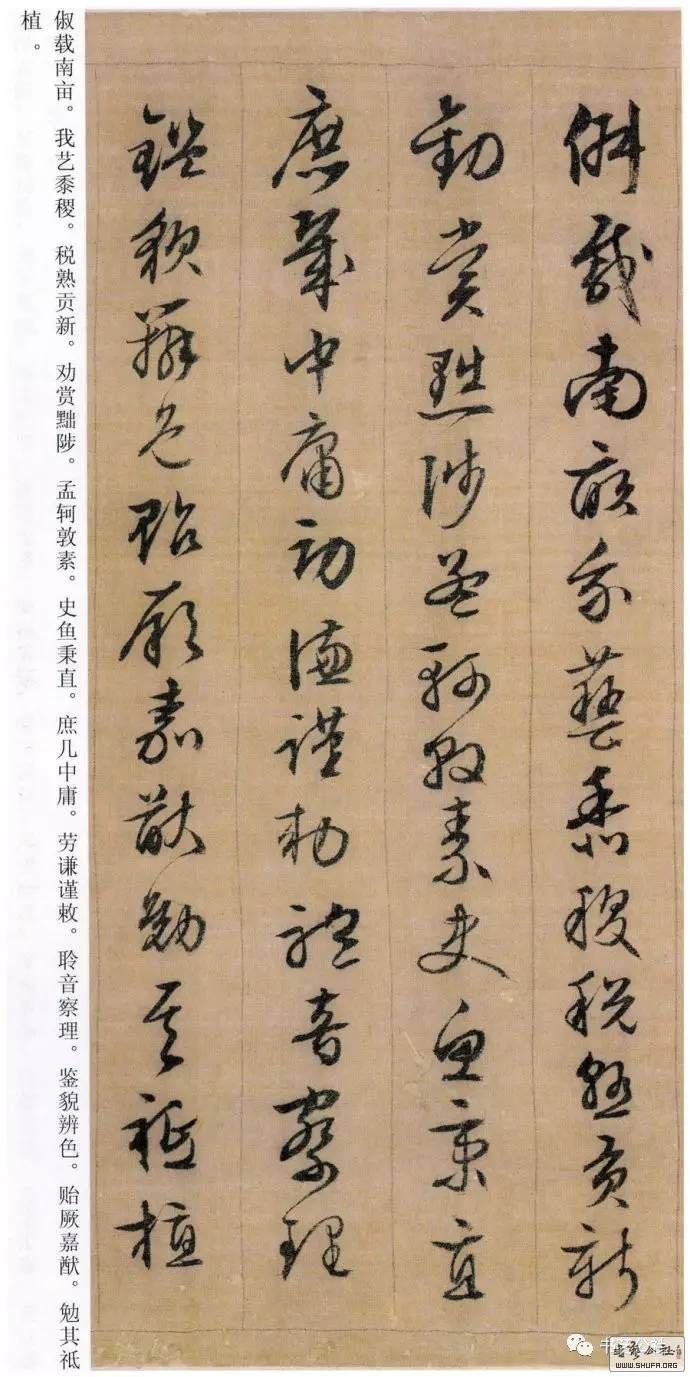 俶载南亩。我艺黍稷。税熟贡新。劝赏黜陟。孟轲敦素。史鱼秉直。庶几中庸。劳谦谨敕。聆音察理。鉴貌辨色。贻厥嘉猷。勉其祗
植。
俶載南畝我藝黍稷稅熟貢新
勸賞黜陟孟軻敦素史魚秉直
庶幾中庸勞謙謹勅聆音察理
鑑貌辨色貽厥嘉猷勉其祗植
书艺公社
書藝公社
WWW.SHUFA.ORG